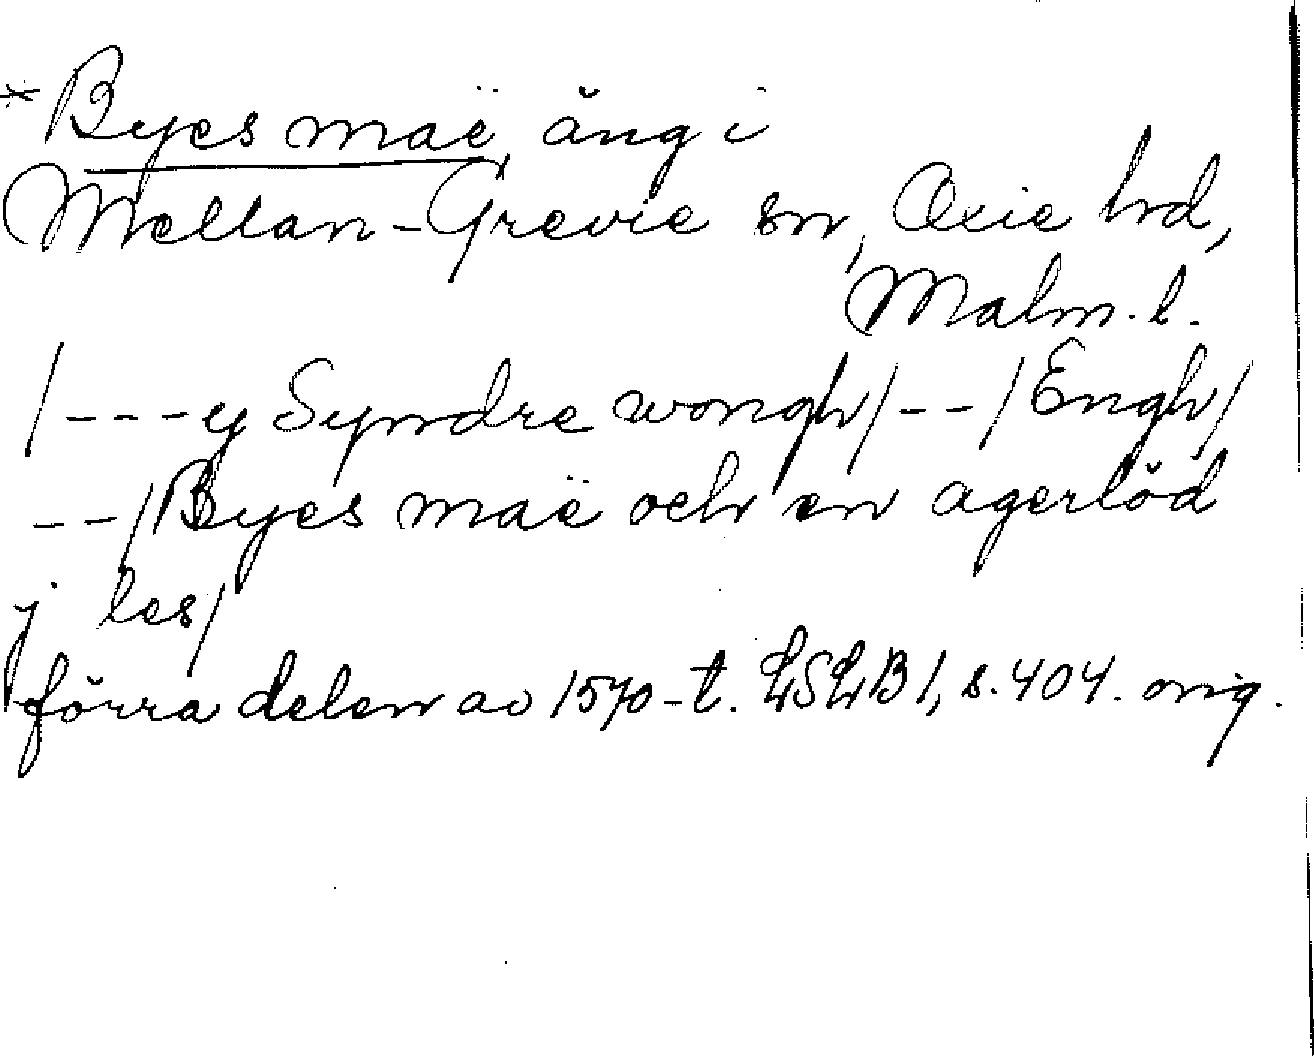 *Byes maë, äng i
Mellan-Grevie sn, Oxie hd,
Malm. l.
/---ey Syndre wongh/--/Engh/
--/Byes maë och en agerlöd
j les/
förra delen av 1570-t. LSLB1, s. 404. orig.